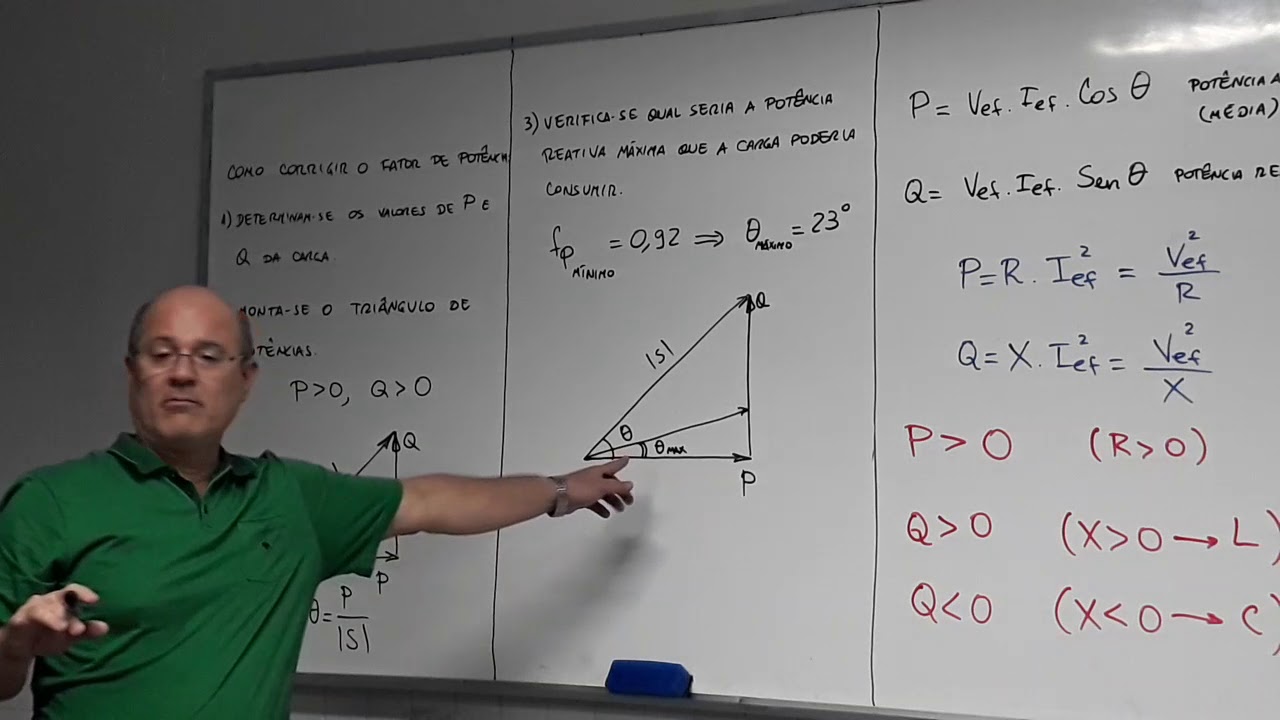 COMO CORRIGIR O FATOR DE POTÊNCIA
1) DETERMINAM-SE OS VALORES DE P E
Q DA CARGA.
MONTA-SE O TRIÂNGULO DE
POTÊNCIAS.
P>0, Q>0
Q
P
θ = P / |S|
3) VERIFICA-SE QUAL SERIA A POTÊNCIA
REATIVA MÁXIMA QUE A CARGA PODERIA
CONSUMIR.
fp MÍNIMO = 0,92 ⇒ θ MÁXIMO = 23°
Q
|S|
θ
θ MAX
P
P = Vef. Ief. Cos θ POTÊNCIA A
(MÉDIA)
Q = Vef. Ief. Sen θ POTÊNCIA RE
P = R. Ief² = Vef² / R
Q = X. Ief² = Vef² / X
P > 0 (R > 0)
Q > 0 (X > 0 → L)
Q < 0 (X < 0 → C)